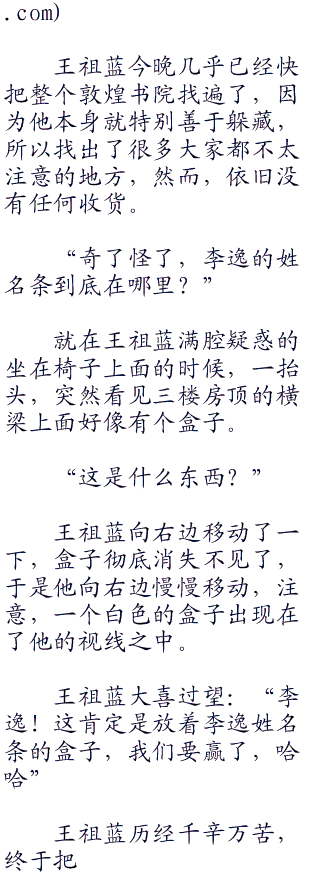 .com)
王祖蓝今晚几乎已经快
把整个敦煌书院找遍了，因
为他本身就特别善于躲藏，
所以找出了很多大家都不太
注意的地方，然而，依旧没
有任何收货。
“奇了怪了，李逸的姓
名条到底在哪里？”
就在王祖蓝满腔疑惑的
坐在椅子上面的时候，一抬
头，突然看见三楼房顶的横
梁上面好像有个盒子。
“这是什么东西？”
王祖蓝向右边移动了一
下，盒子彻底消失不见了，
于是他向右边慢慢移动，注
意，一个白色的盒子出现在
了他的视线之中。
王祖蓝大喜过望：“李
逸！这肯定是放着李逸姓名
条的盒子，我们要赢了，哈
哈”
王祖蓝历经千辛万苦，
终于把